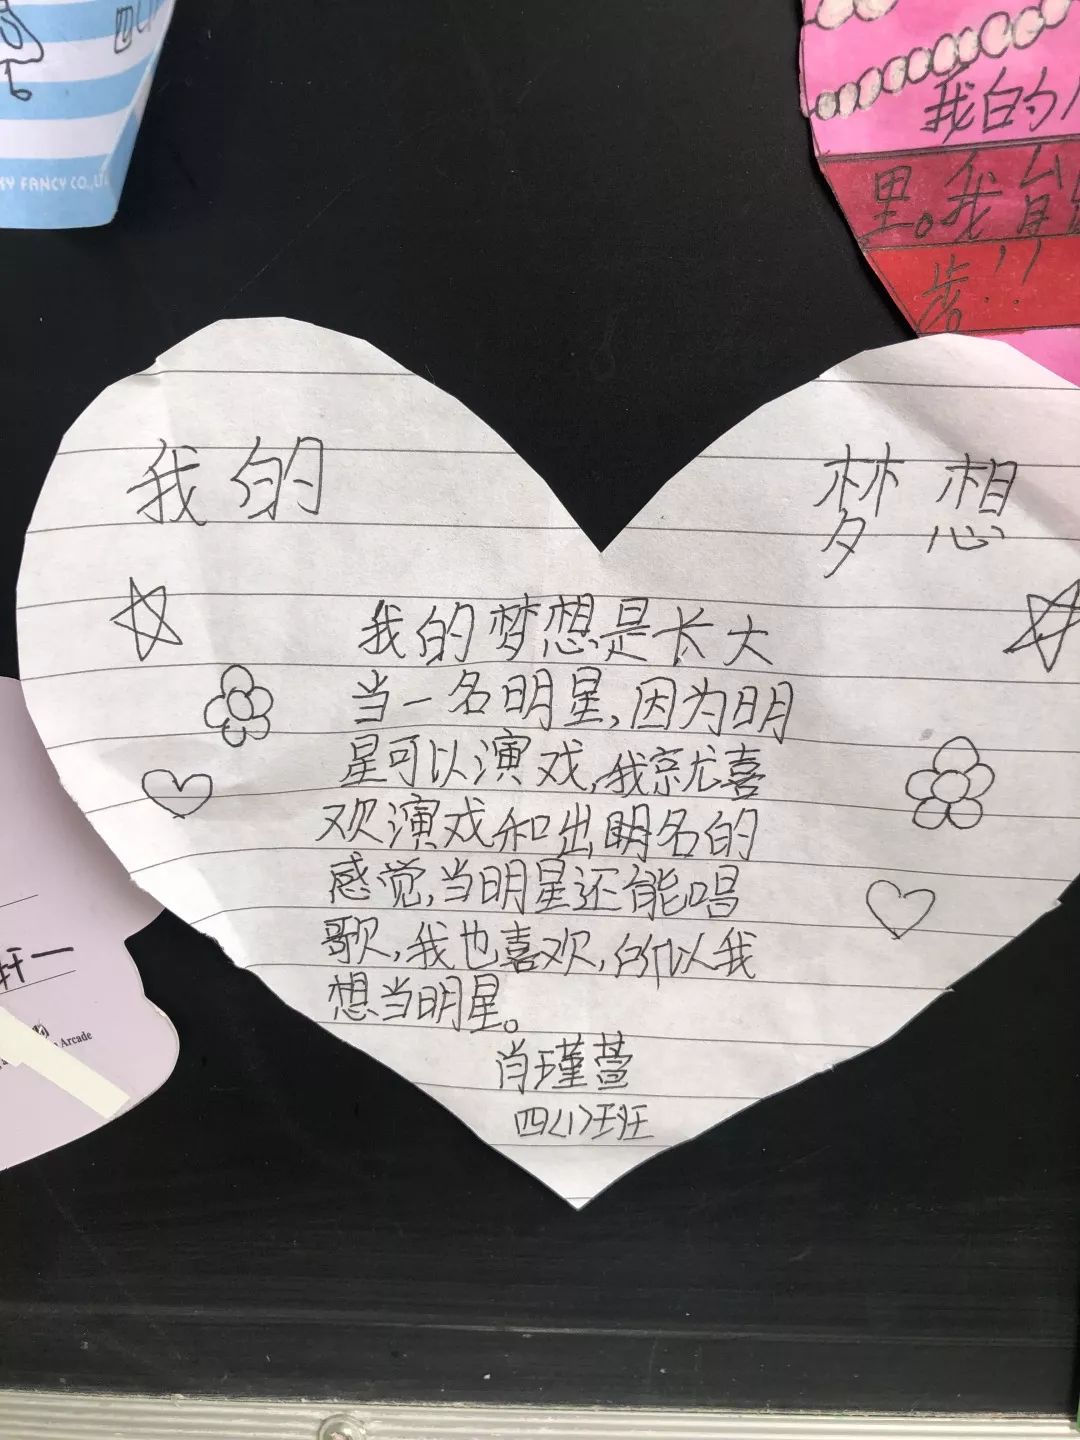 FANCY CO., LT
我的
里。我
步!!
我的 梦想
我的梦想是长大
当一名明星,因为明
星可以演戏,我就喜
欢演戏和出明名的
感觉,当明星还能唱
歌,我也喜欢,所以我
想当明星。
肖瑾萱
四(1)班
Arcade